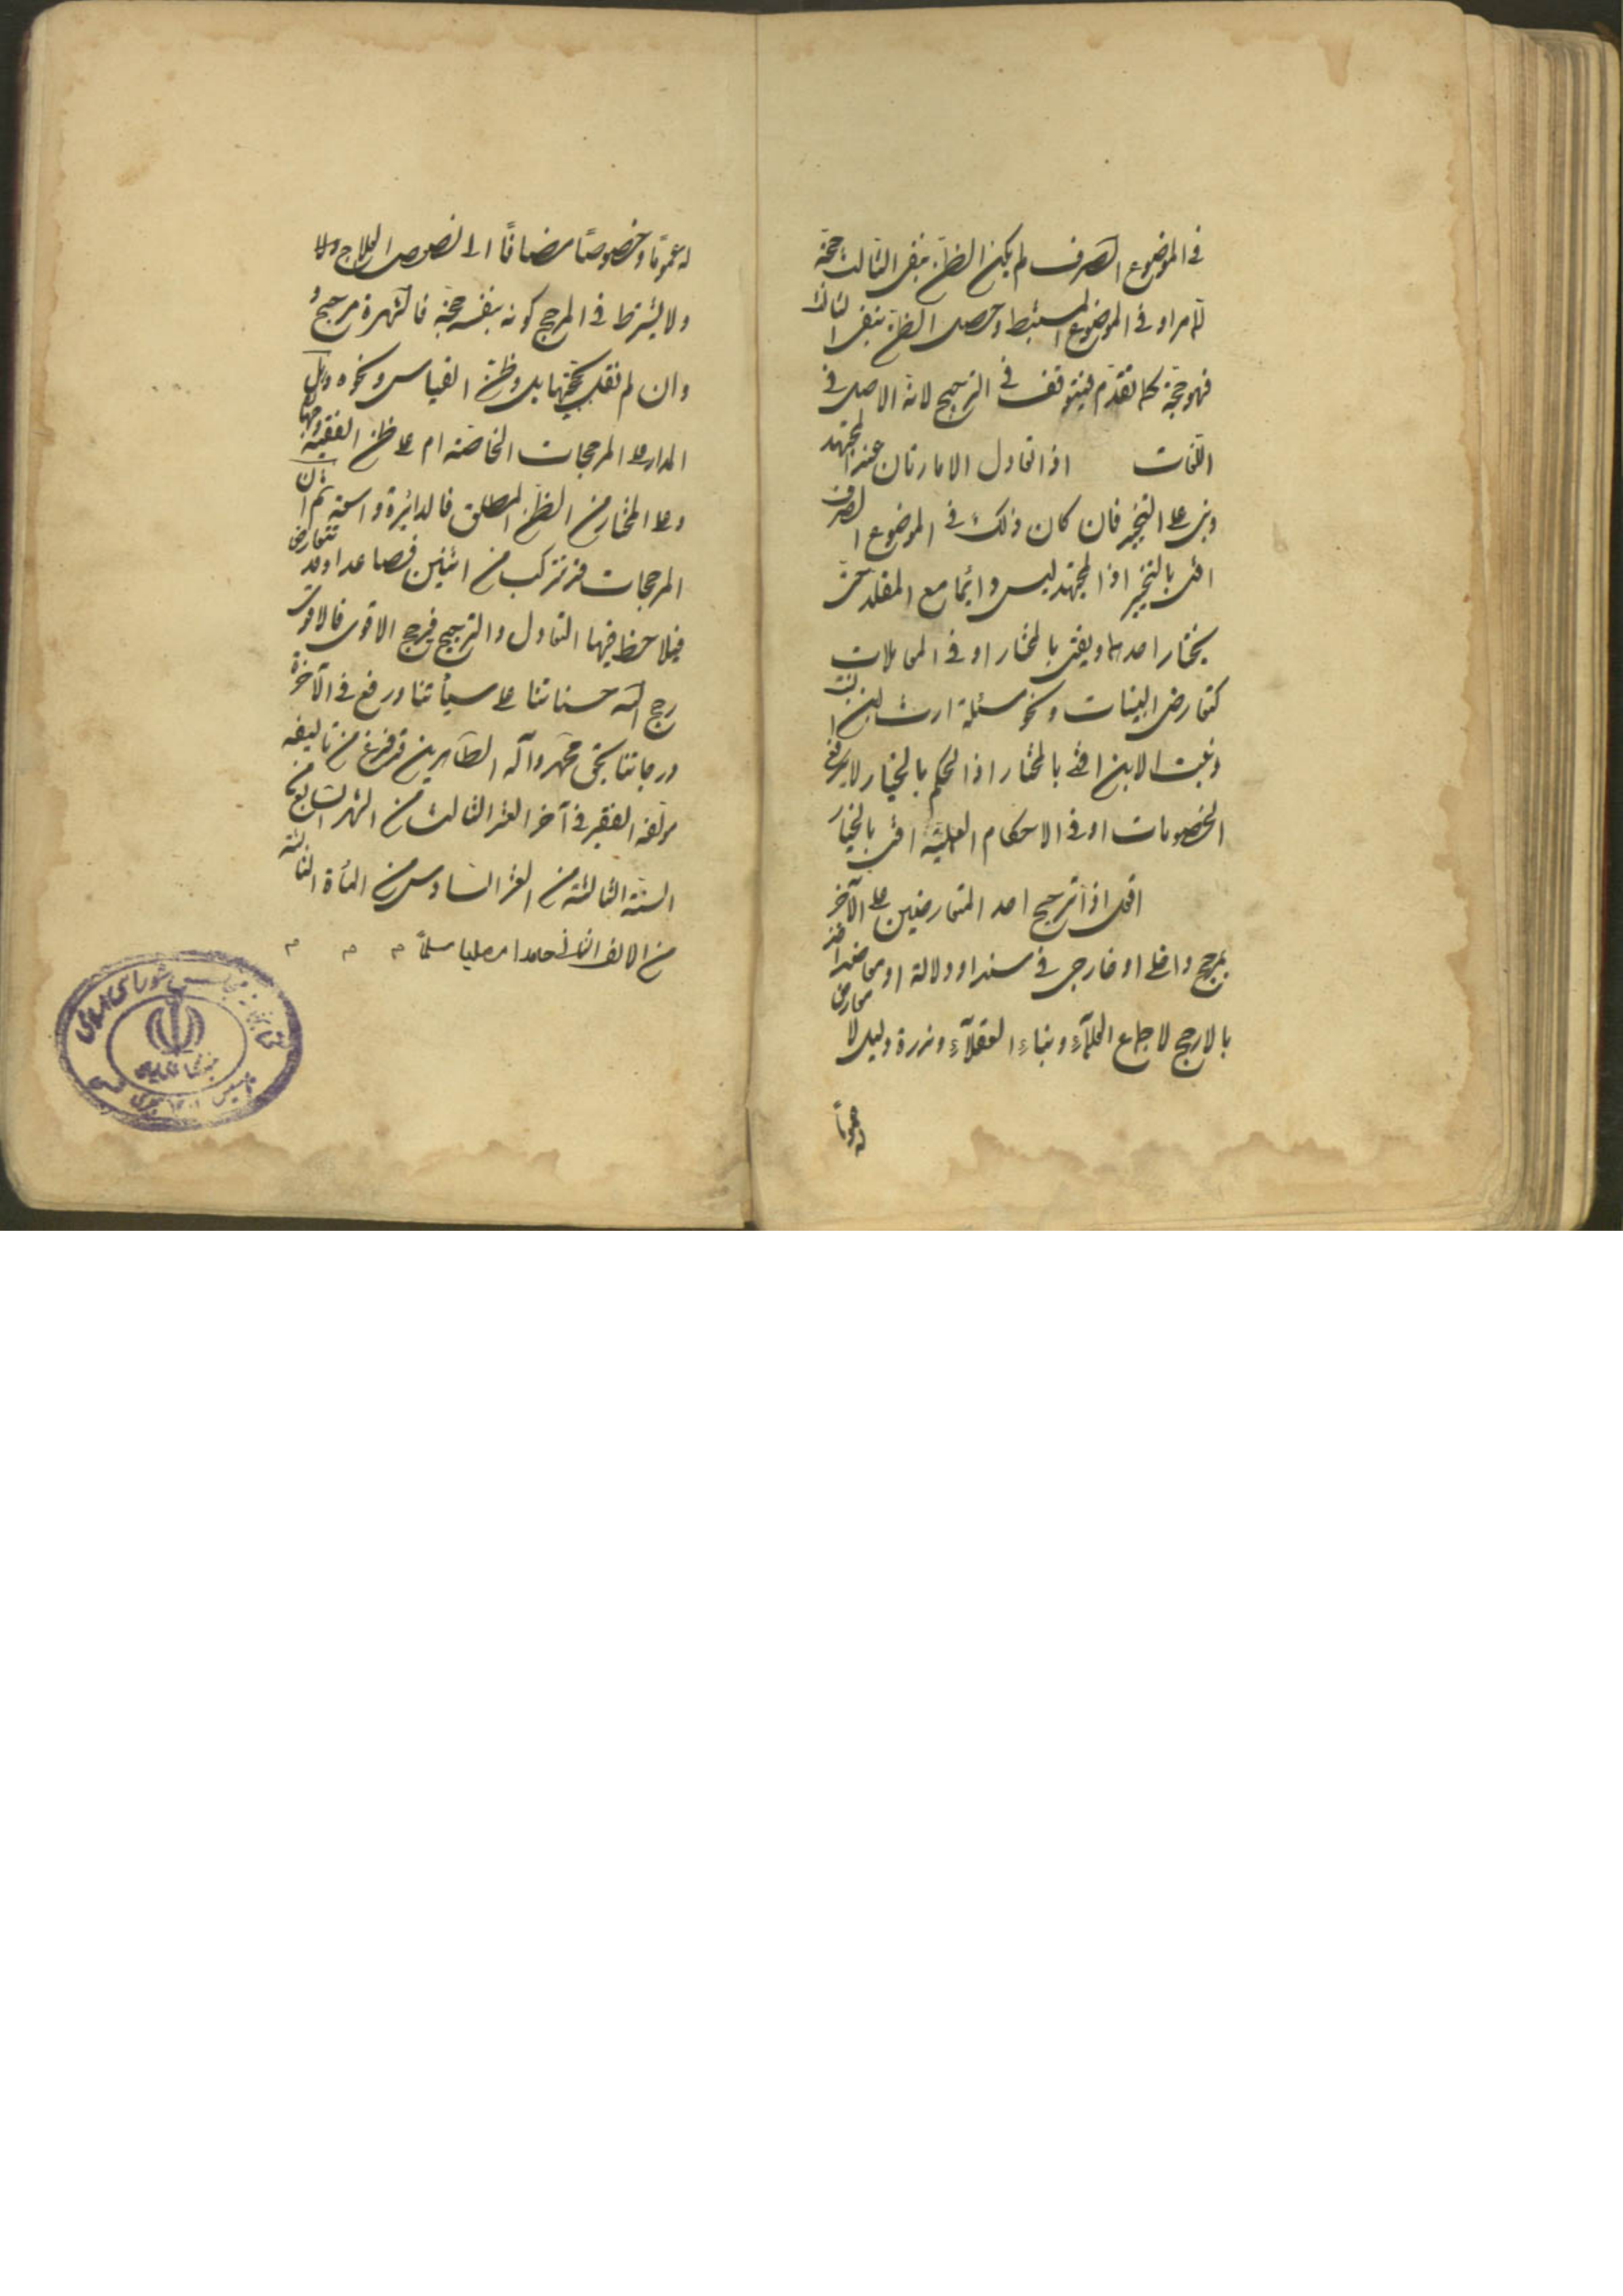 في الموضوع الصرف لم يكن الظن بنفي الثالث حجة
لما مر او في الموضوع المستنبط وحصل الظن بنفي الثالث
فهو حجة كما تقدم فيتوقف في الترجيح لانه الاصل في
اللغات اذا تعادل الامارتان عند المجتهد
وبنى على التخيير فان كان ذلك في الموضوع الصرف
افتى بالتخيير اذ المجتهد ليس دائما مع المقلد حتى
يختار احدهما ويفتى بالمختار او في المعاملات
كتعارض البينات ونحو مسئلة ارث ابن البنت
وبنت الابن افتى بالمختار اذ الحكم بالخيار لا يرفع
الخصومات او في الاحكام العملية افتى بالخيار
اصل اذا ترجح احد المتعارضين على الآخر
بمرجح داخلى او خارجى في سند او دلالة او معاضد اخذ
بالارجح لاجماع العلمآء وبناء العقلآء وندرة دليل لا معارض
له عموماً
له عموماً وخصوصاً مضافاً الى نصوص العلاج
ولا يشترط في المرجح كونه بنفسه حجة فالشهرة مرجح
وان لم نقل بحجيتها بل وظن القياس ونحوه وهل
المدار على المرجحات الخاصة ام على ظن الفقيه وجهان
وعلى المختار من الظن المطلق فالدائرة واسعة ثم ان
المرجحات قد تتركب من اثنين فصاعدا وقد تتعارض
فيلاحظ فيها التعادل والترجيح فيرجح الاقوى فالاقوى
رجح الله حسناتنا على سيأتنا ورفع في الآخرة
درجاتنا بحق محمد وآله الطاهرين قد فرغ من تاليفه
مؤلفه الفقير في آخر العشر الثالث من الشهر السابع من
السنة الثالثة من العشر السادس من المأة الثالثة
من الالف الثانى حامدا مصليا مسلماً م م م
كتابخانه مجلس شوراى اسلامى
تأسيس ١٣٠٢ هجرى